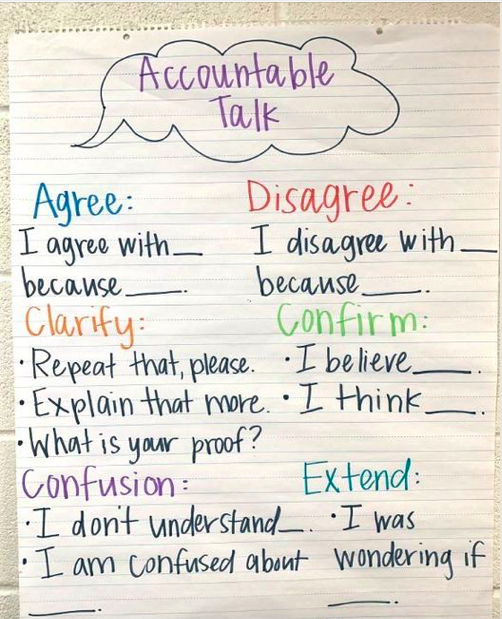 Accountable
Talk
Agree:
I agree with __
because ____.
Disagree:
I disagree with ___
because ____.
Clarify:
• Repeat that, please.
• Explain that more.
• What is your proof?
Confirm:
• I believe ____.
• I think ____.
Confusion:
• I don't understand __.
• I am confused about
____.
Extend:
• I was
wondering if
____.